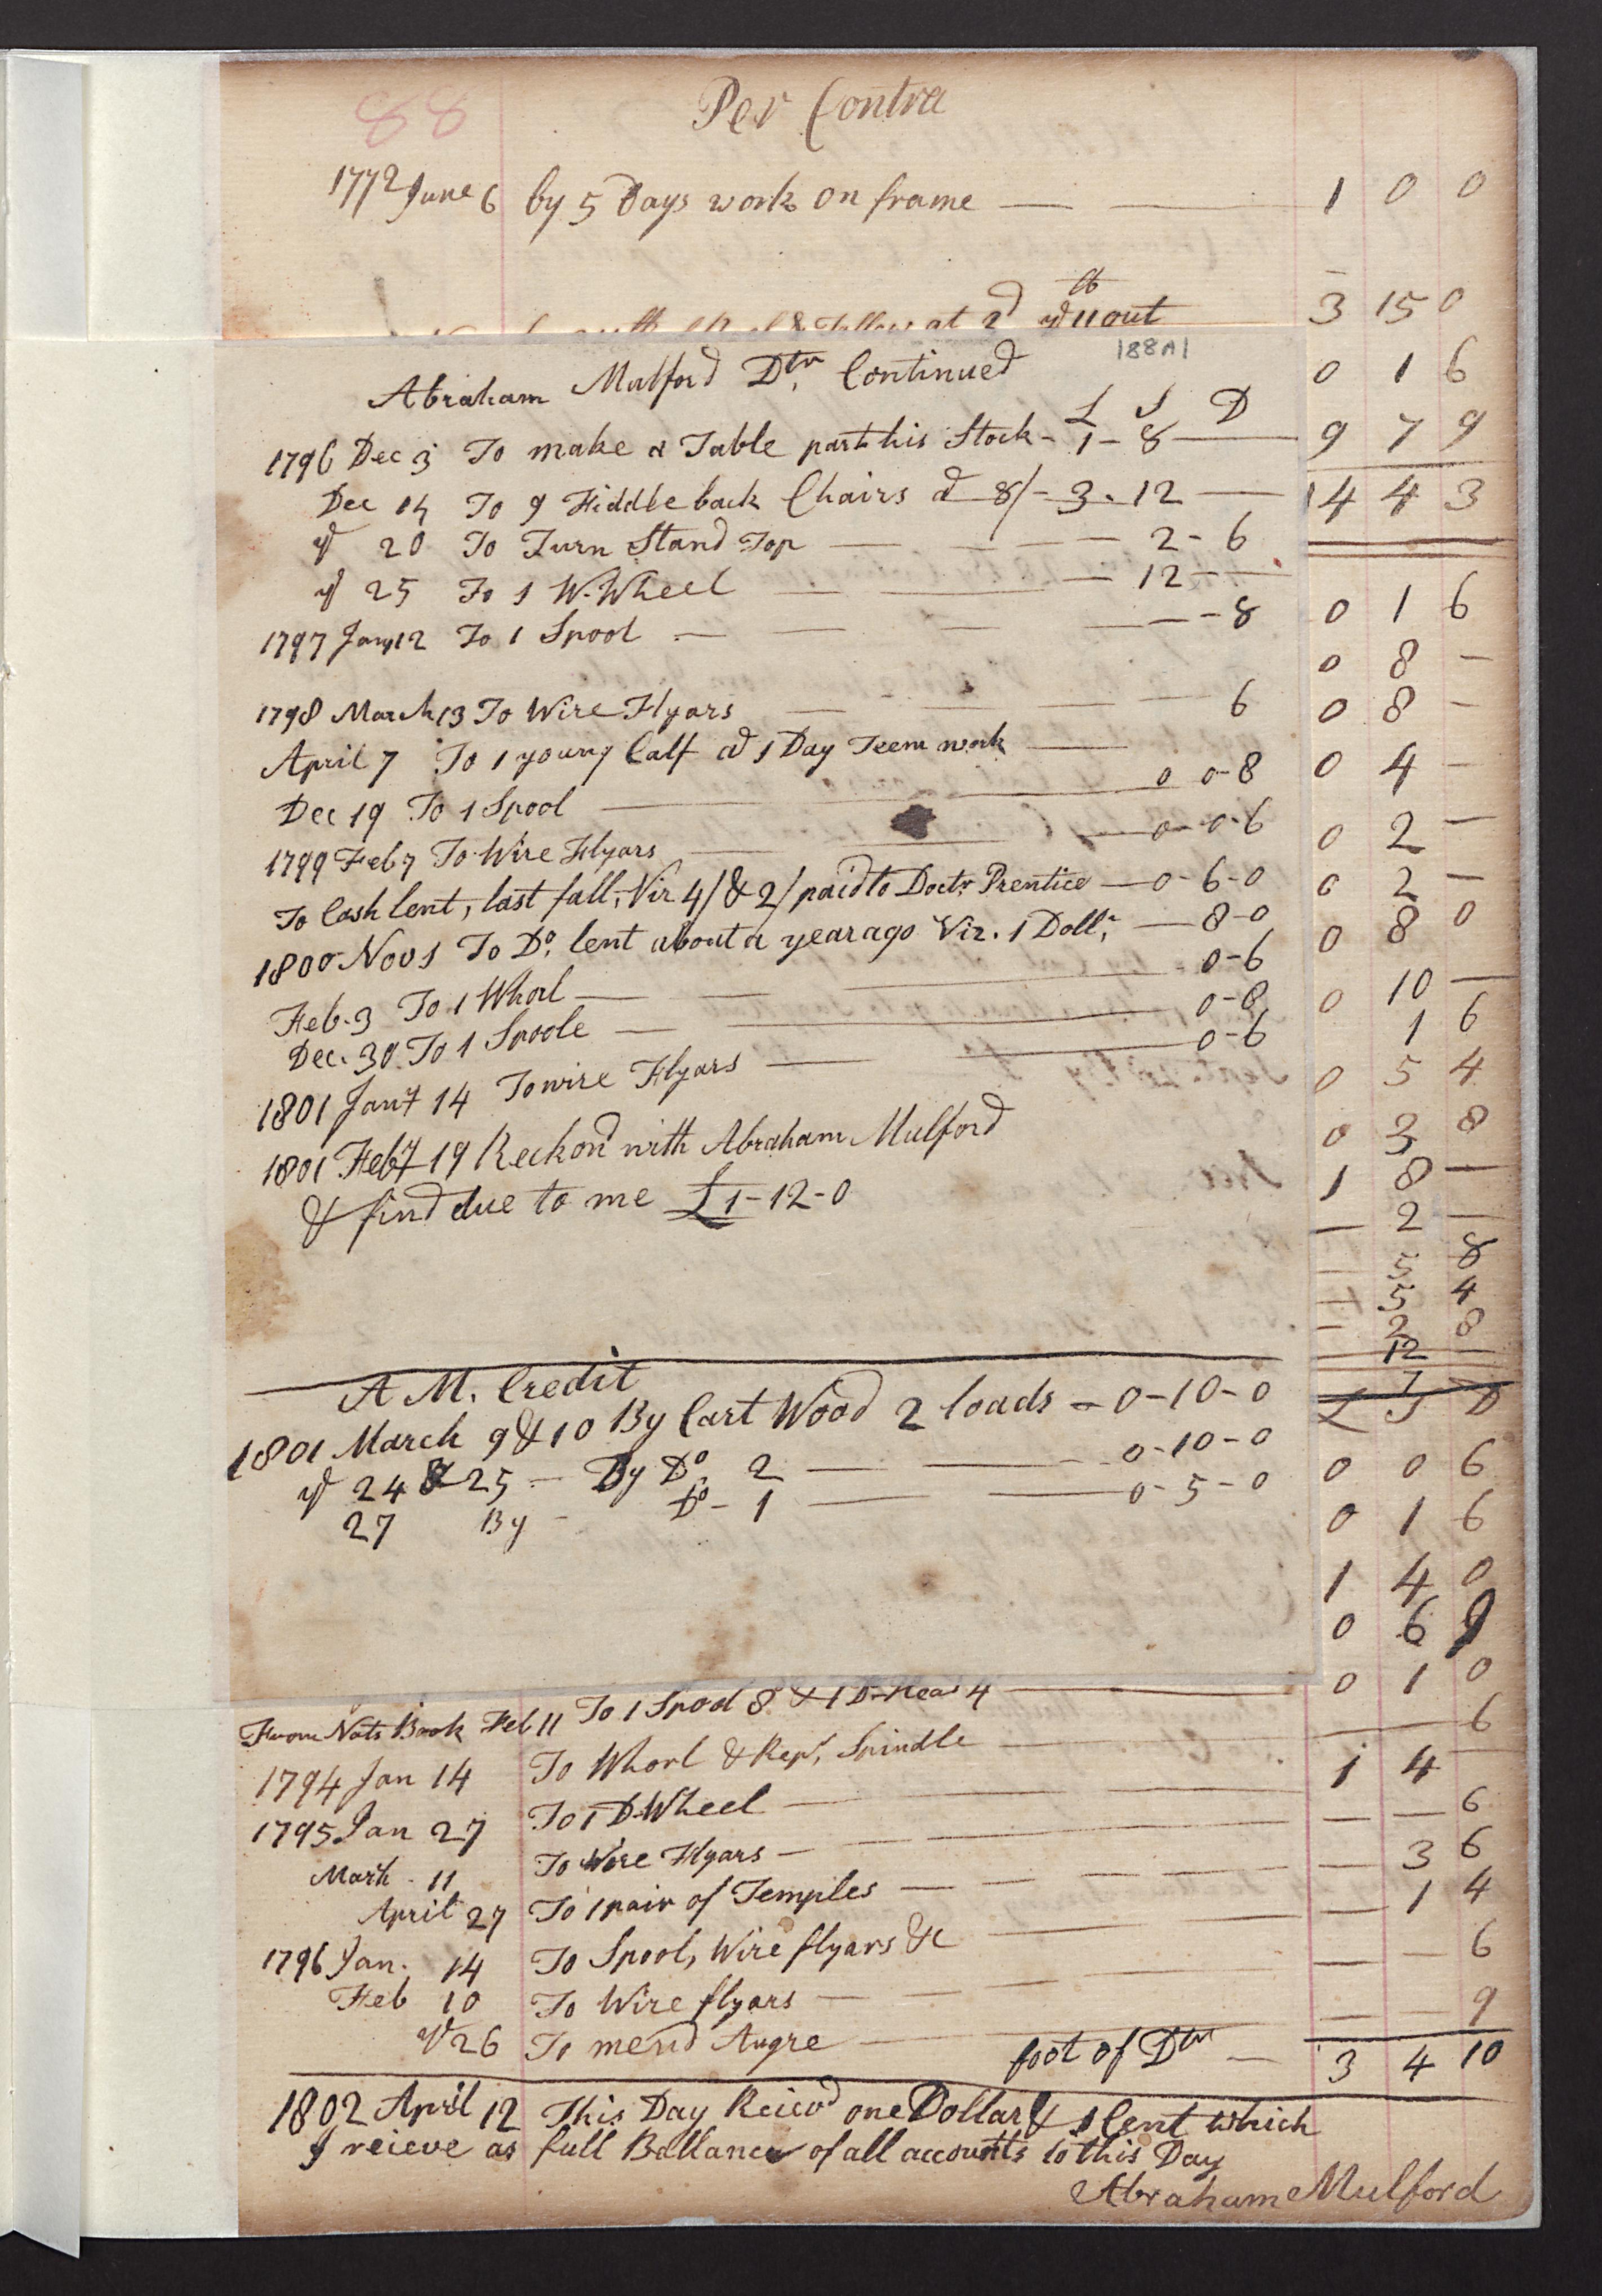 88
Per Contra
1772 June 6 by 5 Days work on frame — — 1 0 0
& Tallow at 2d ye lb 11 out 3 15 0
188A1
Abraham Mulford Dtr. Continued
0 1 6
£ S D
1796 Dec 3 To make a Table part his Stock - 1 - 8 —
9 7 9
Dec 14 To 9 Fiddle back Chairs a 8/ - 3 - 12 —
14 4 3
ye 20 To Turn Stand Top — — — 2 - 6
ye 25 To 1 W-Wheel — — — 12 —
0 1 6
1797 Jany 12 To 1 Spool — — — - 8
0 8 —
1798 March 13 To Wire Flyars — — — 6
0 8 —
April 7 To 1 young Calf a 1 Day Teem work —
0 4 —
Dec 19 To 1 Spool — 0 0-8
0 2 —
1799 Feb 7 To Wire Flyars — 0-0-6
0 2 —
To Cash lent, last fall, Viz 4/ & 2/ paid to Doctr Prentice — 0-6-0
0 8 0
1800 Nov 1 To Do. lent about a year ago Viz. 1 Doll. — 8-0
0 10 —
Feb. 3 To 1 Whorl — 0-6
1 6
Dec. 30 To 1 Spoole — 0-8
0 5 4
1801 Jany 14 To wire Flyars — 0-6
0 3 8
1801 Feby 19 Reckond with Abraham Mulford
1 8 —
& find due to me £1-12-0
— 2 —
— 5 8
— 5 4
— 2 8
12 —
7
£ S D
A M. Credit
1801 March 9 & 10 By Cart Wood 2 loads - 0-10-0
0 0 6
ye 24 & 25 - By Do. 2 — 0-10-0
0 1 6
27 By - Do - 1 — 0-5-0
1 4 0
0 6 9
0 1 0
From Nats Book Feb 11 To 1 Spool 8 & 1 D-Head 4 —
6
1794 Jan 14 To Whorl & Repr. Spindle —
1 4
1795 Jan 27 To 1 D-Wheel —
— — 6
March 11 To Wire Flyars —
— 3 6
April 27 To 1 pair of Temples —
— 1 4
1796 Jan. 14 To Spool, Wire flyars &c
— — 6
Feb 10 To Wire flyars —
— — 9
ye 26 To mend Augre — foot of Dtr — 3 4 10
1802 April 12 This Day Reicvd one Dollar & 1 Cent which
I reieve as full Ballance of all accounts to this Day
Abraham Mulford